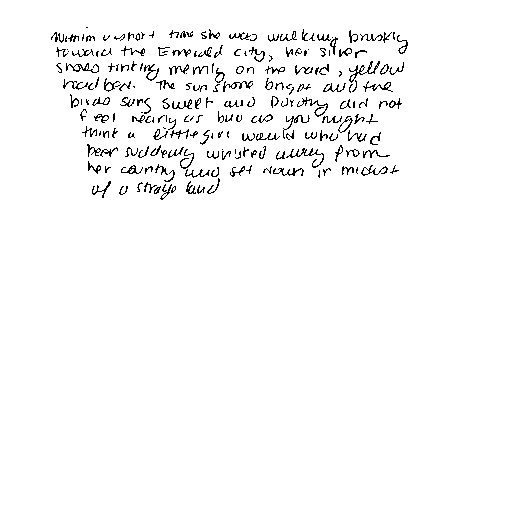 Within a short time she was walking briskly
toward the Emerald City, her silver
shoes tinkling merrily on the hard, yellow
roadbed. The sun shone bright and the
birds sang sweet and Dorothy did not
feel nearly as bad as you might
think a little girl would who had
been suddenly whisked away from
her country and set down in midst
of a strange land